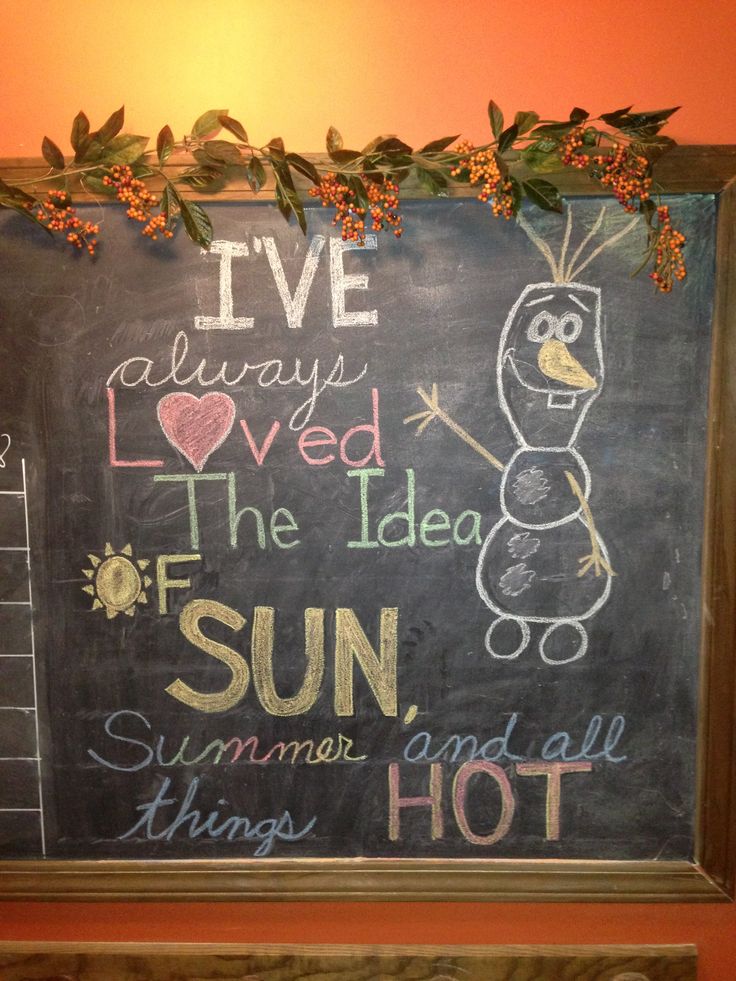 I'VE
always
Loved
The Idea
OF
SUN,
Summer and all
things HOT